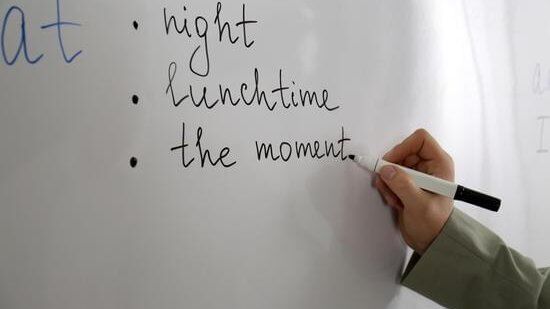 at
• night
• lunchtime
• the moment